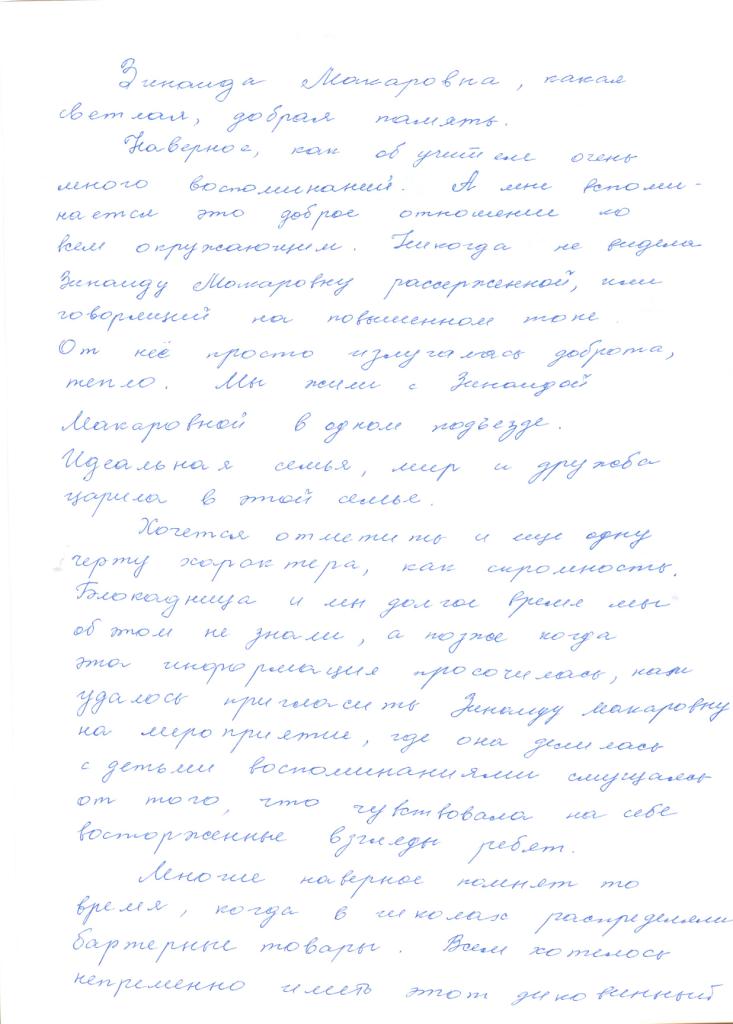 Зинаида Макаровна, какая
светлая, добрая память.
Наверное, как об учителе очень
много воспоминаний. А мне вспоми-
нается это доброе отношение ко
всем окружающим. Никогда не видела
Зинаиду Макаровну рассерженной, или
говорящей на повышенном тоне.
От неё просто излучалась доброта,
тепло. Мы жили с Зинаидой
Макаровной в одном подъезде.
Идеальная семья, мир и дружба
царила в этой семье.
Хочется отметить и еще одну
черту характера, как скромность.
Блокадница и мы долгое время мы
об этом не знали, а позже когда
эта информация просочилась, нам
удалось пригласить Зинаиду Макаровну
на мероприятие, где она делилась
с детьми воспоминаниями смущаясь
от того, что чувствовала на себе
восторженные взгляды ребят.
Многие наверное помнят то
время, когда в школах распределяли
бартерные товары. Всем хотелось
непременно иметь этот диковинный